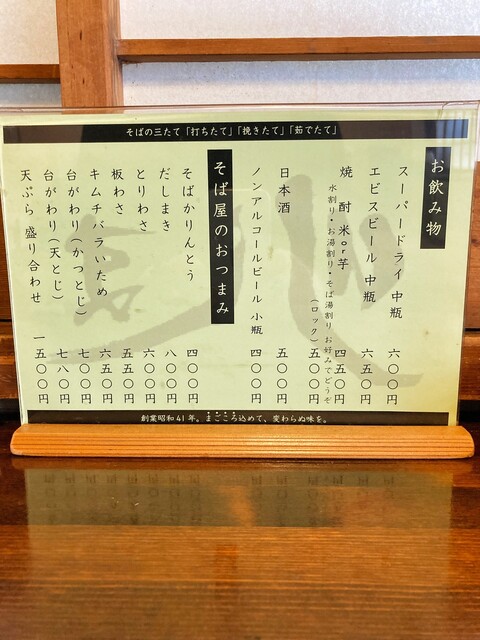 そばの三たて「打ちたて」「挽きたて」「茹でたて」
お飲み物
スーパードライ 中瓶 六〇〇円
エビスビール 中瓶 六五〇円
焼 酎 米or芋 四五〇円
水割り・お湯割り・そば湯割り お好みでどうぞ
(ロック) 五〇〇円
日本酒 五〇〇円
ノンアルコールビール 小瓶 四〇〇円
そば屋のおつまみ
そばかりんとう 四〇〇円
だしまき 八〇〇円
とりわさ 六〇〇円
板わさ 五五〇円
キムチバラいため 六五〇円
台がわり(かつとじ) 七〇〇円
台がわり(天とじ) 七八〇円
天ぷら 盛り合わせ 一五〇〇円
創業昭和41年。まごころ込めて、変わらぬ味を。